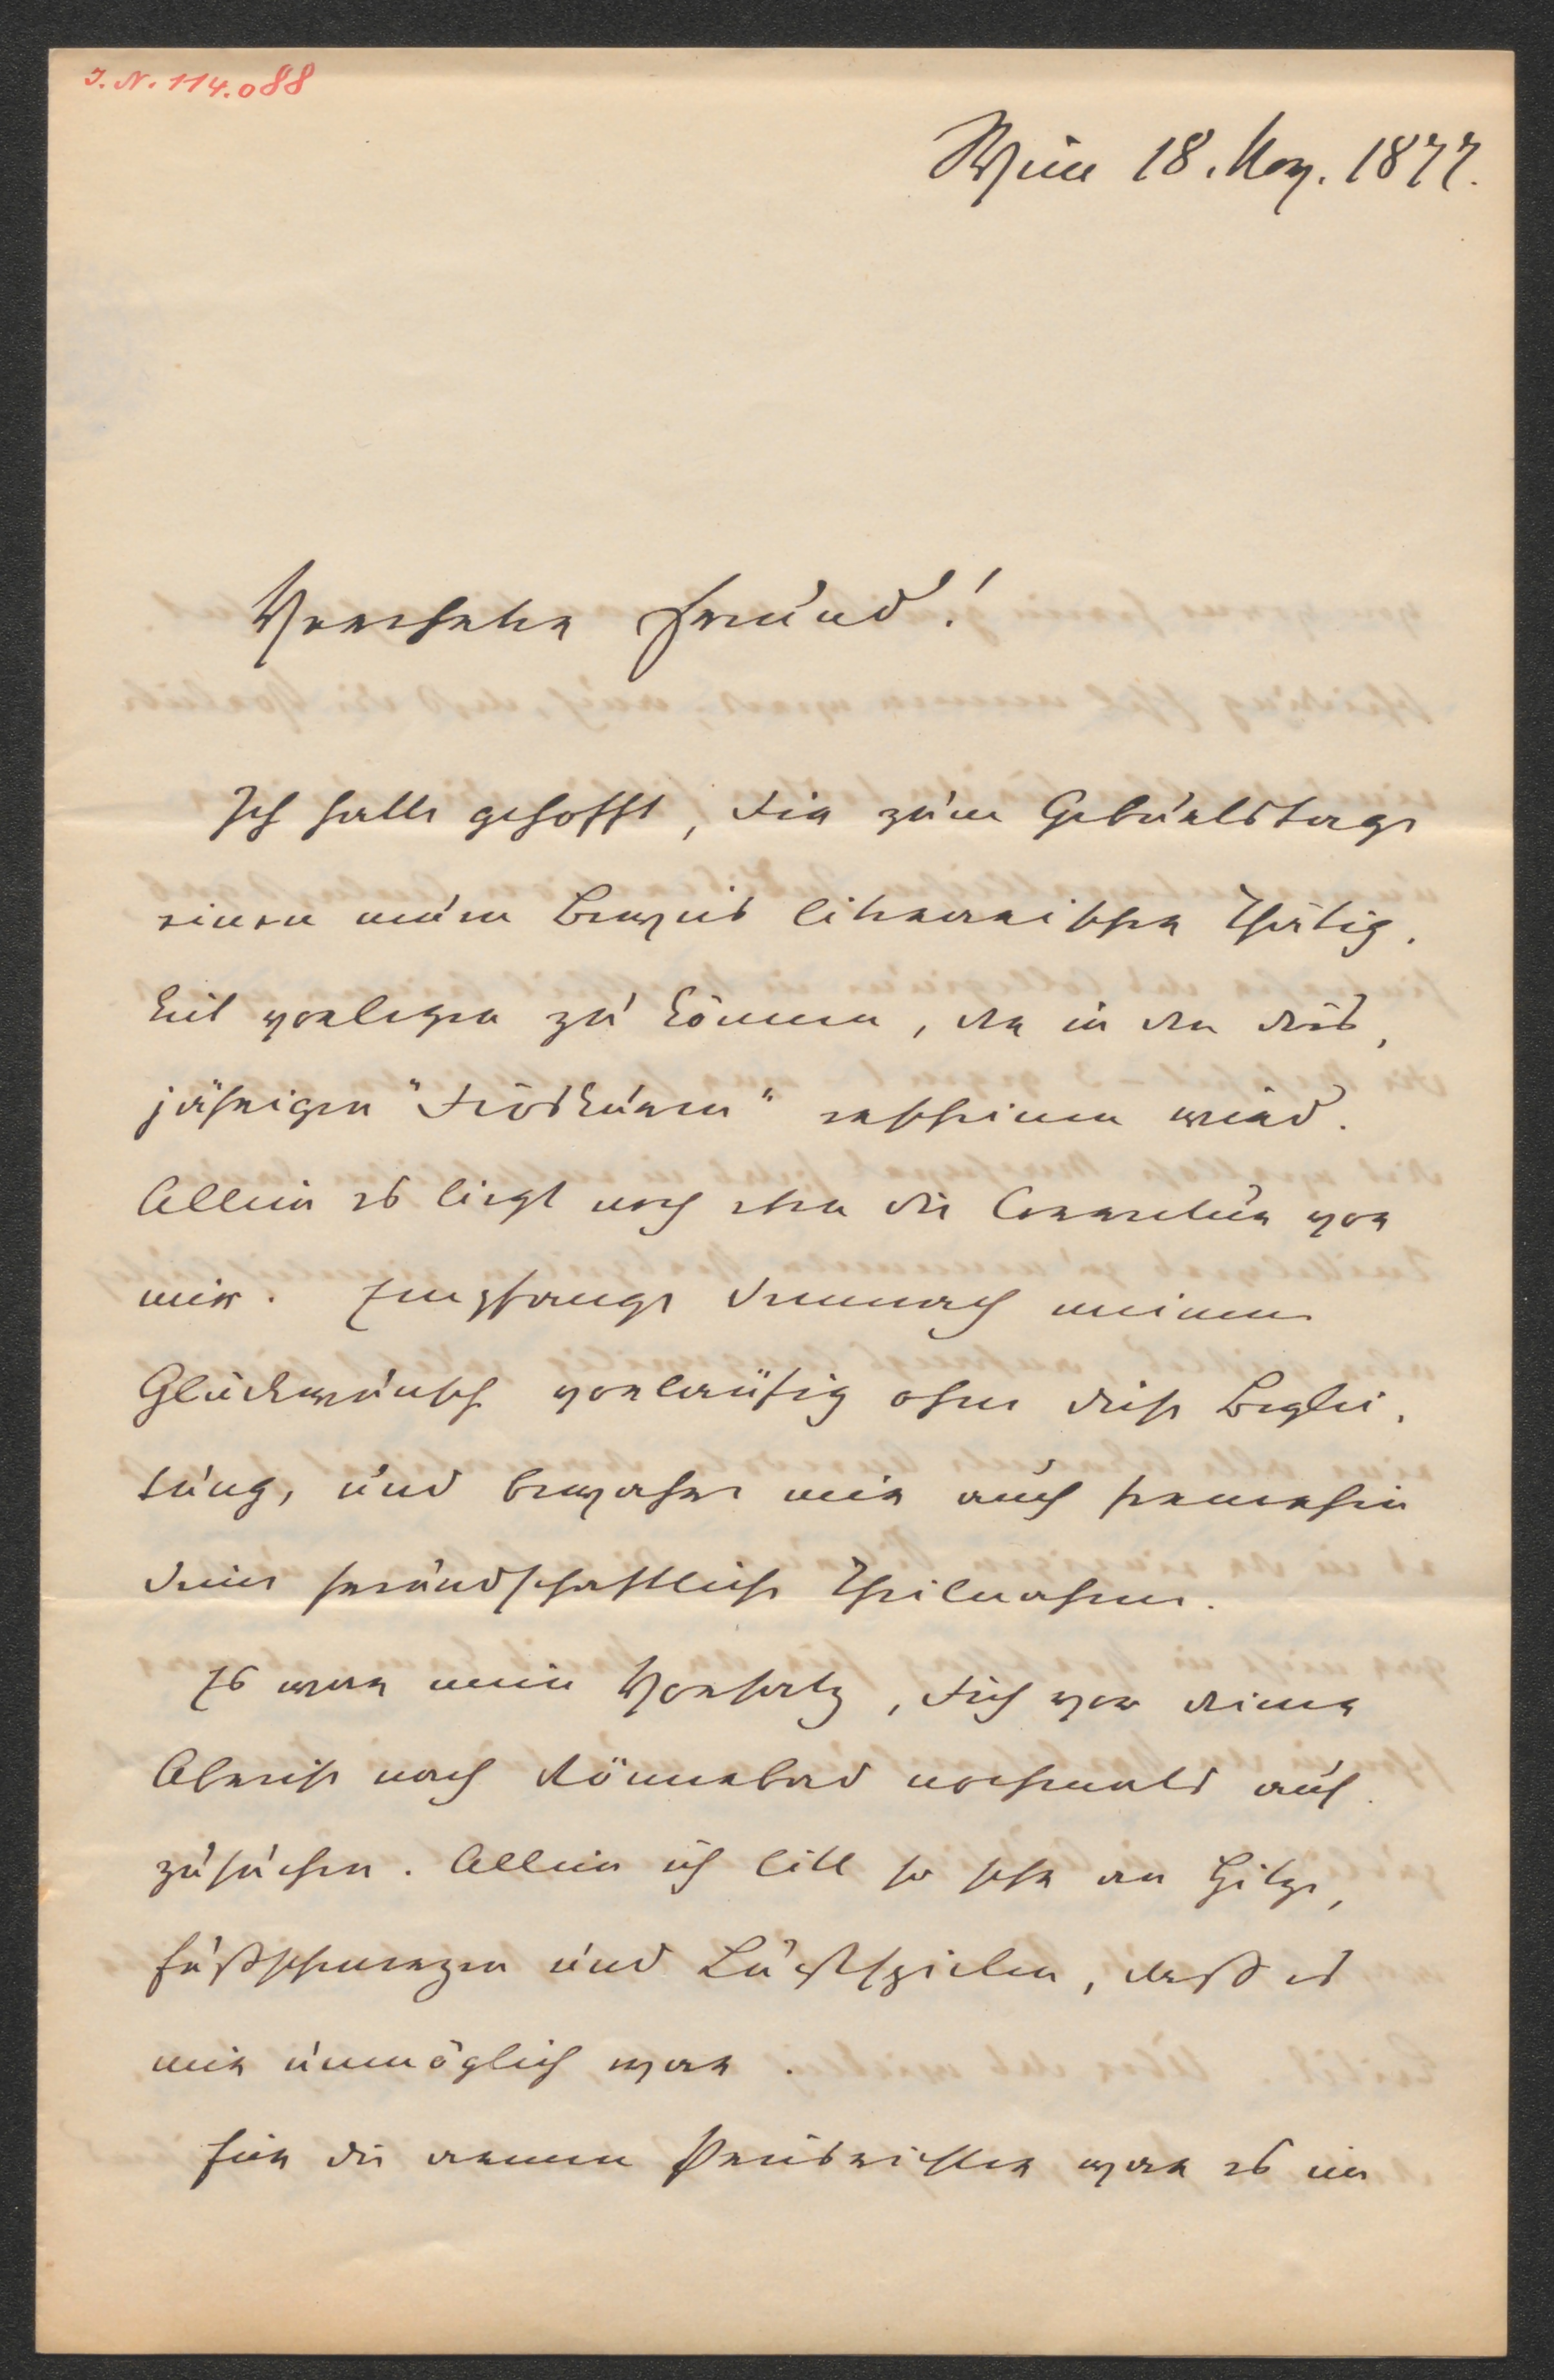 I. N. 114.088
Wien 18. Aug. 1877.
Verehrter Freund!
Ich hatte gehofft, Dir zum Geburtstage
einen neuen Beweis literarischer Thätig-
keit vorlegen zu können, der in den dies-
jährigen "Dioskuren" erscheinen wird.
Allein es liegt noch eben die Correctur vor
mir. Empfange demnach meinen
Glückwunsch vorläufig ohne diese Beglei-
tung, und bewahre mir auch fernerhin
Deine freundschaftliche Theilnahme.
Es war mein Vorsatz, Dich vor Deiner
Abreise nach Römerbad nochmals auf-
zusuchen. Allein ich litt so sehr an Hitze,
Fußschmerzen und Lustspielen, daß es
mir unmöglich war.
Für die armen Preisrichter war es eine